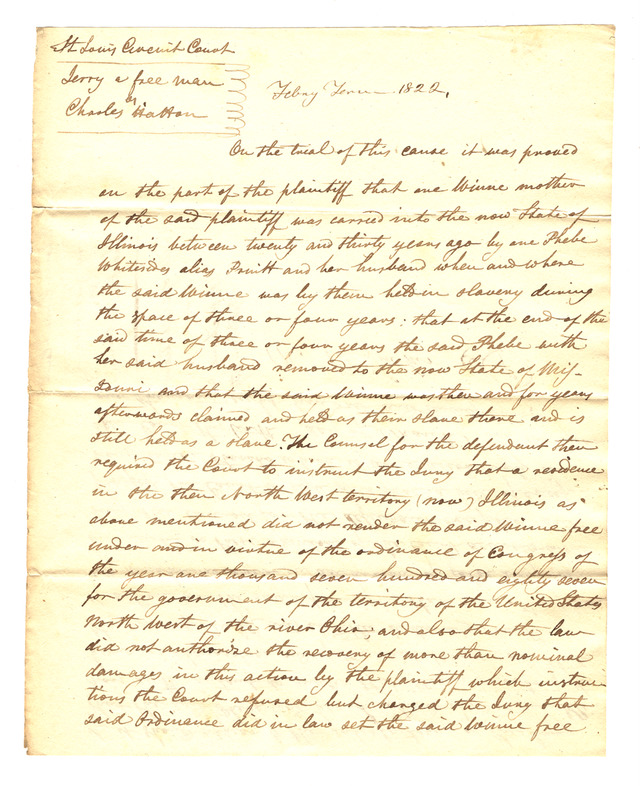 St Louis Circuit Court
Jerry a free man
vs
Charles Hatton
Febuy Term 1822,
On the trial of this cause it was proved
on the part of the plaintiff that one Winne mother
of the said plaintiff was carried into the now State of
Illinois between twenty and thirty years ago by one Phebe
Whitesides alias Pruitt and her husband when and where
the said Winne was by them held in slavery during
the space of three or four years: that at the end of the
said time of three or four years the said Phebe with
her said husband removed to the now State of Mis-
souri and that the said Winne was then and for years
afterwards claimed and held as their slave there and is
still held as a slave. The Counsel for the defendant then
required the Court to instruct the Jury that a residence
in the then North West territory (now) Illinois as
above mentioned did not render the said Winne free
under and in virtue of the ordinance of Congress of
the year one thousand seven hundred and eighty seven
for the government of the territory of the United States
North west of the river Ohio; and also that the law
did not authorize the recovery of more than nominal
damages in this action by the plaintiff which instruc-
tions the Court refused but charged the Jury that
said Ordinance did in law set the said Winne free